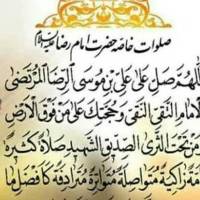 صلوات خاصه حضرت امام رضا علیه‌السلام
اَللّهُمَّ صَلِّ عَلی عَلیِّ بْنِ مُوسَی الرِّضَا الْمُرْتَضی
الاِمامِ التَّقِیِّ النَّقِیِّ وَحُجَّتِکَ عَلی مَنْ فَوْقَ الْاَرْضِ
وَ مَنْ تَحْتَ الثَّری الصِّدّیقِ الشَّهیدِ صَلاةً کَثیرَةً
مَّةً زاکِیَةً مُتَواصِلَةً مُتَواتِرَةً مُتَرادِفَةً کَاَفْضَلِ ما